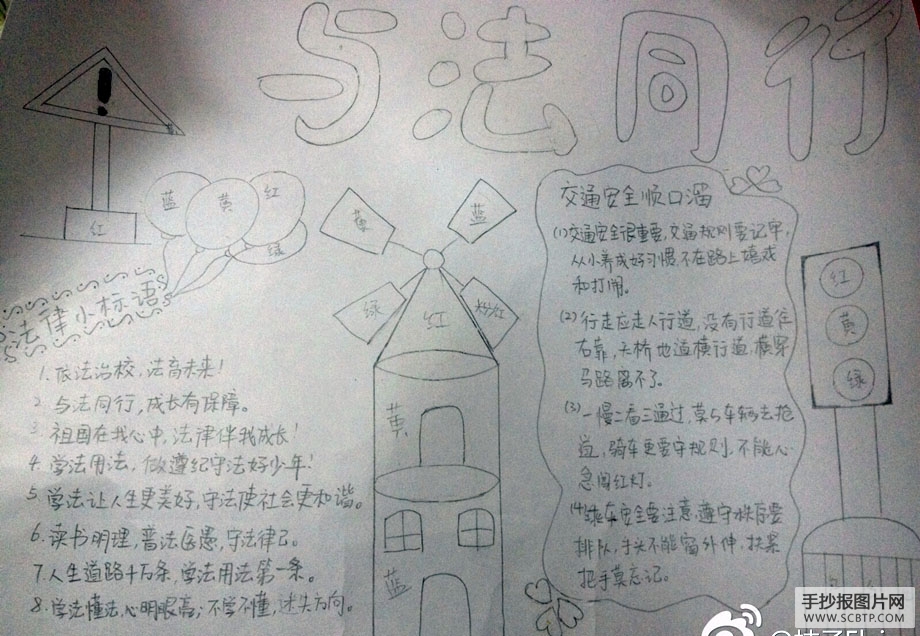 与法同行
红
蓝
黄
红
绿
法律小标语
1.依法治校,法育未来!
2.与法同行,成长有保障。
3.祖国在我心中,法律伴我成长!
4.学法用法,做遵纪守法好少年!
5.学法让人生更美好,守法使社会更和谐。
6.读书明理,普法医愚,守法律己。
7.人生道路千万条,学法用法第一条。
8.学法懂法,心明眼亮;不学不懂,迷失方向。
黄
蓝
绿
粉红
红
黄
蓝
交通安全顺口溜
(1)交通安全很重要,交通规则要记牢,
从小养成好习惯,不在路上嬉戏
和打闹。
(2)行走应走人行道,没有行道往
右靠,天桥地道横行道,横穿
马路离不了。
(3)一慢二看三通过,莫与车辆去抢
道,骑车更要守规则,不能心
急闯红灯。
(4)乘车安全要注意,遵守秩序要
排队,手头不能窗外伸,扶紧
把手莫忘记。
红
黄
绿
手抄报图片网
WWW.SCBTP.COM